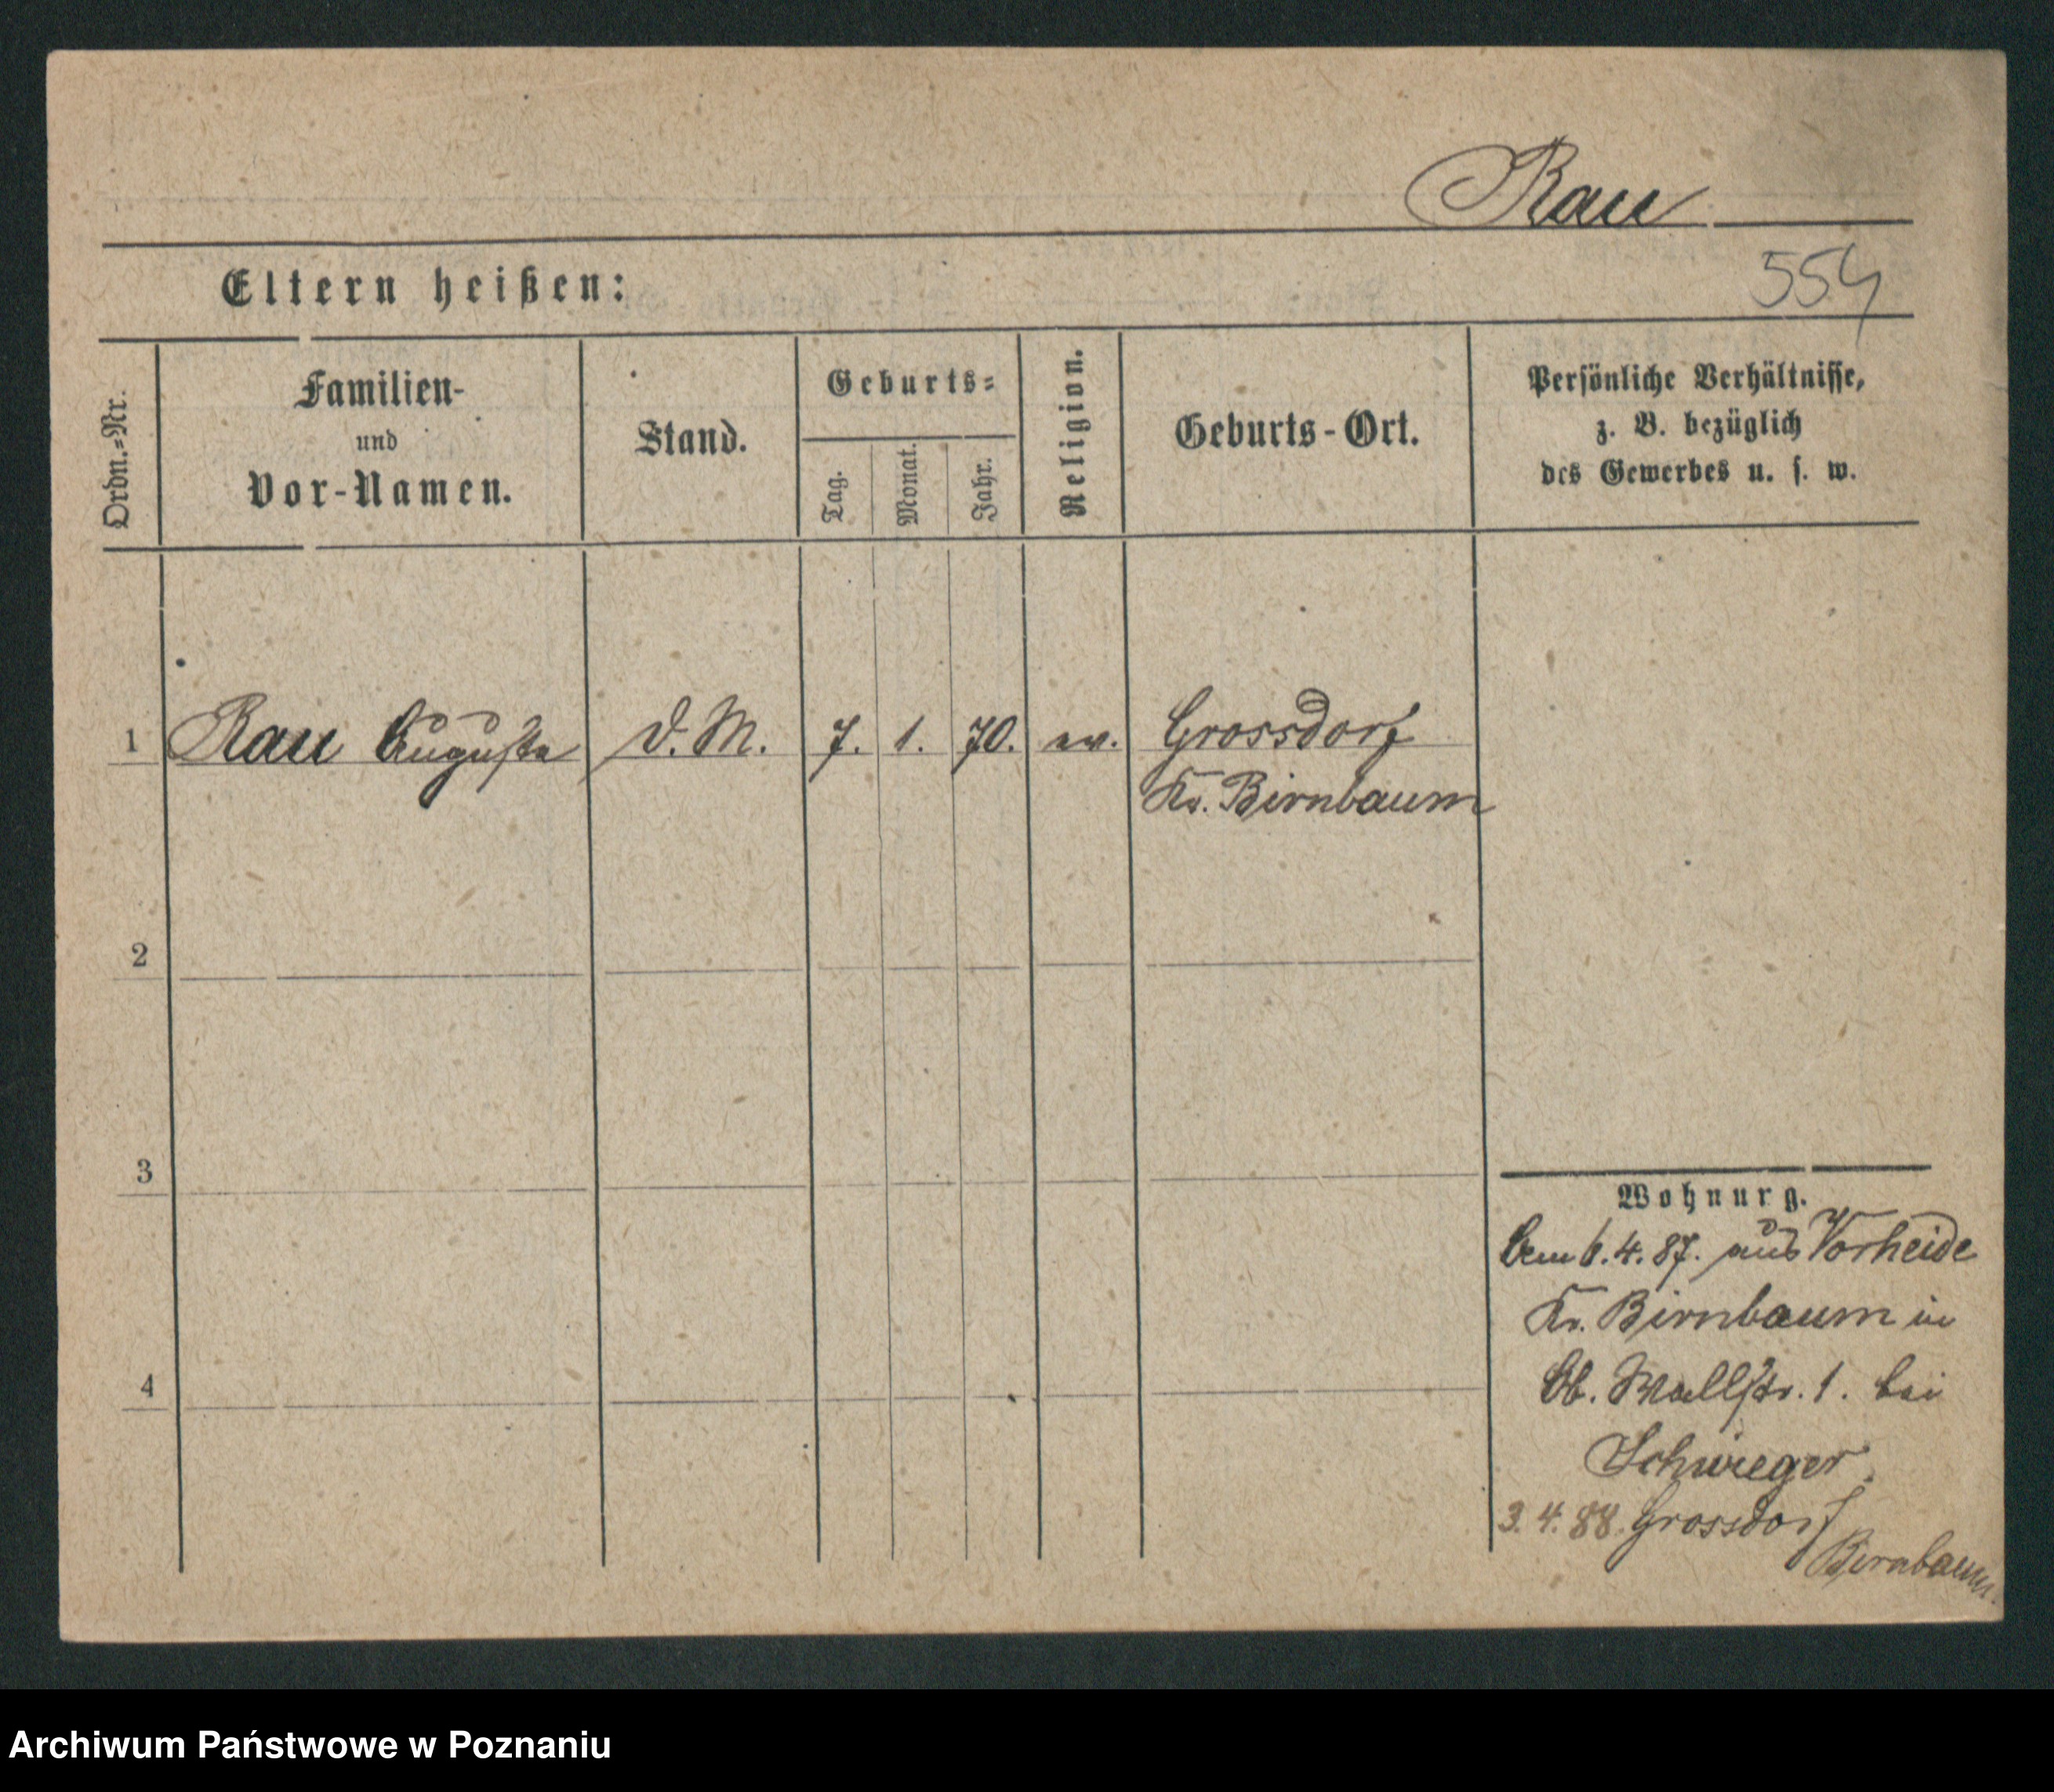 Rau
554
Eltern heißen:
Ordn.=Nr.
Familien-
und
Vor-Namen.
Stand.
Geburts=
Tag.
Monat.
Jahr.
Religion.
Geburts-Ort.
Persönliche Verhältnisse,
z. B. bezüglich
des Gewerbes u. s. w.
1 Rau Auguste D. M. 7. 1. 70. ev. Grossdorf
Kr. Birnbaum
2
3
4
Wohnung.
Am 6. 4. 87. aus Vorheide
Kr. Birnbaum in
Ob. Wallstr. 1. bei
Schwieger.
3. 4. 88. Grossdorf
Birnbaum.
Archiwum Państwowe w Poznaniu